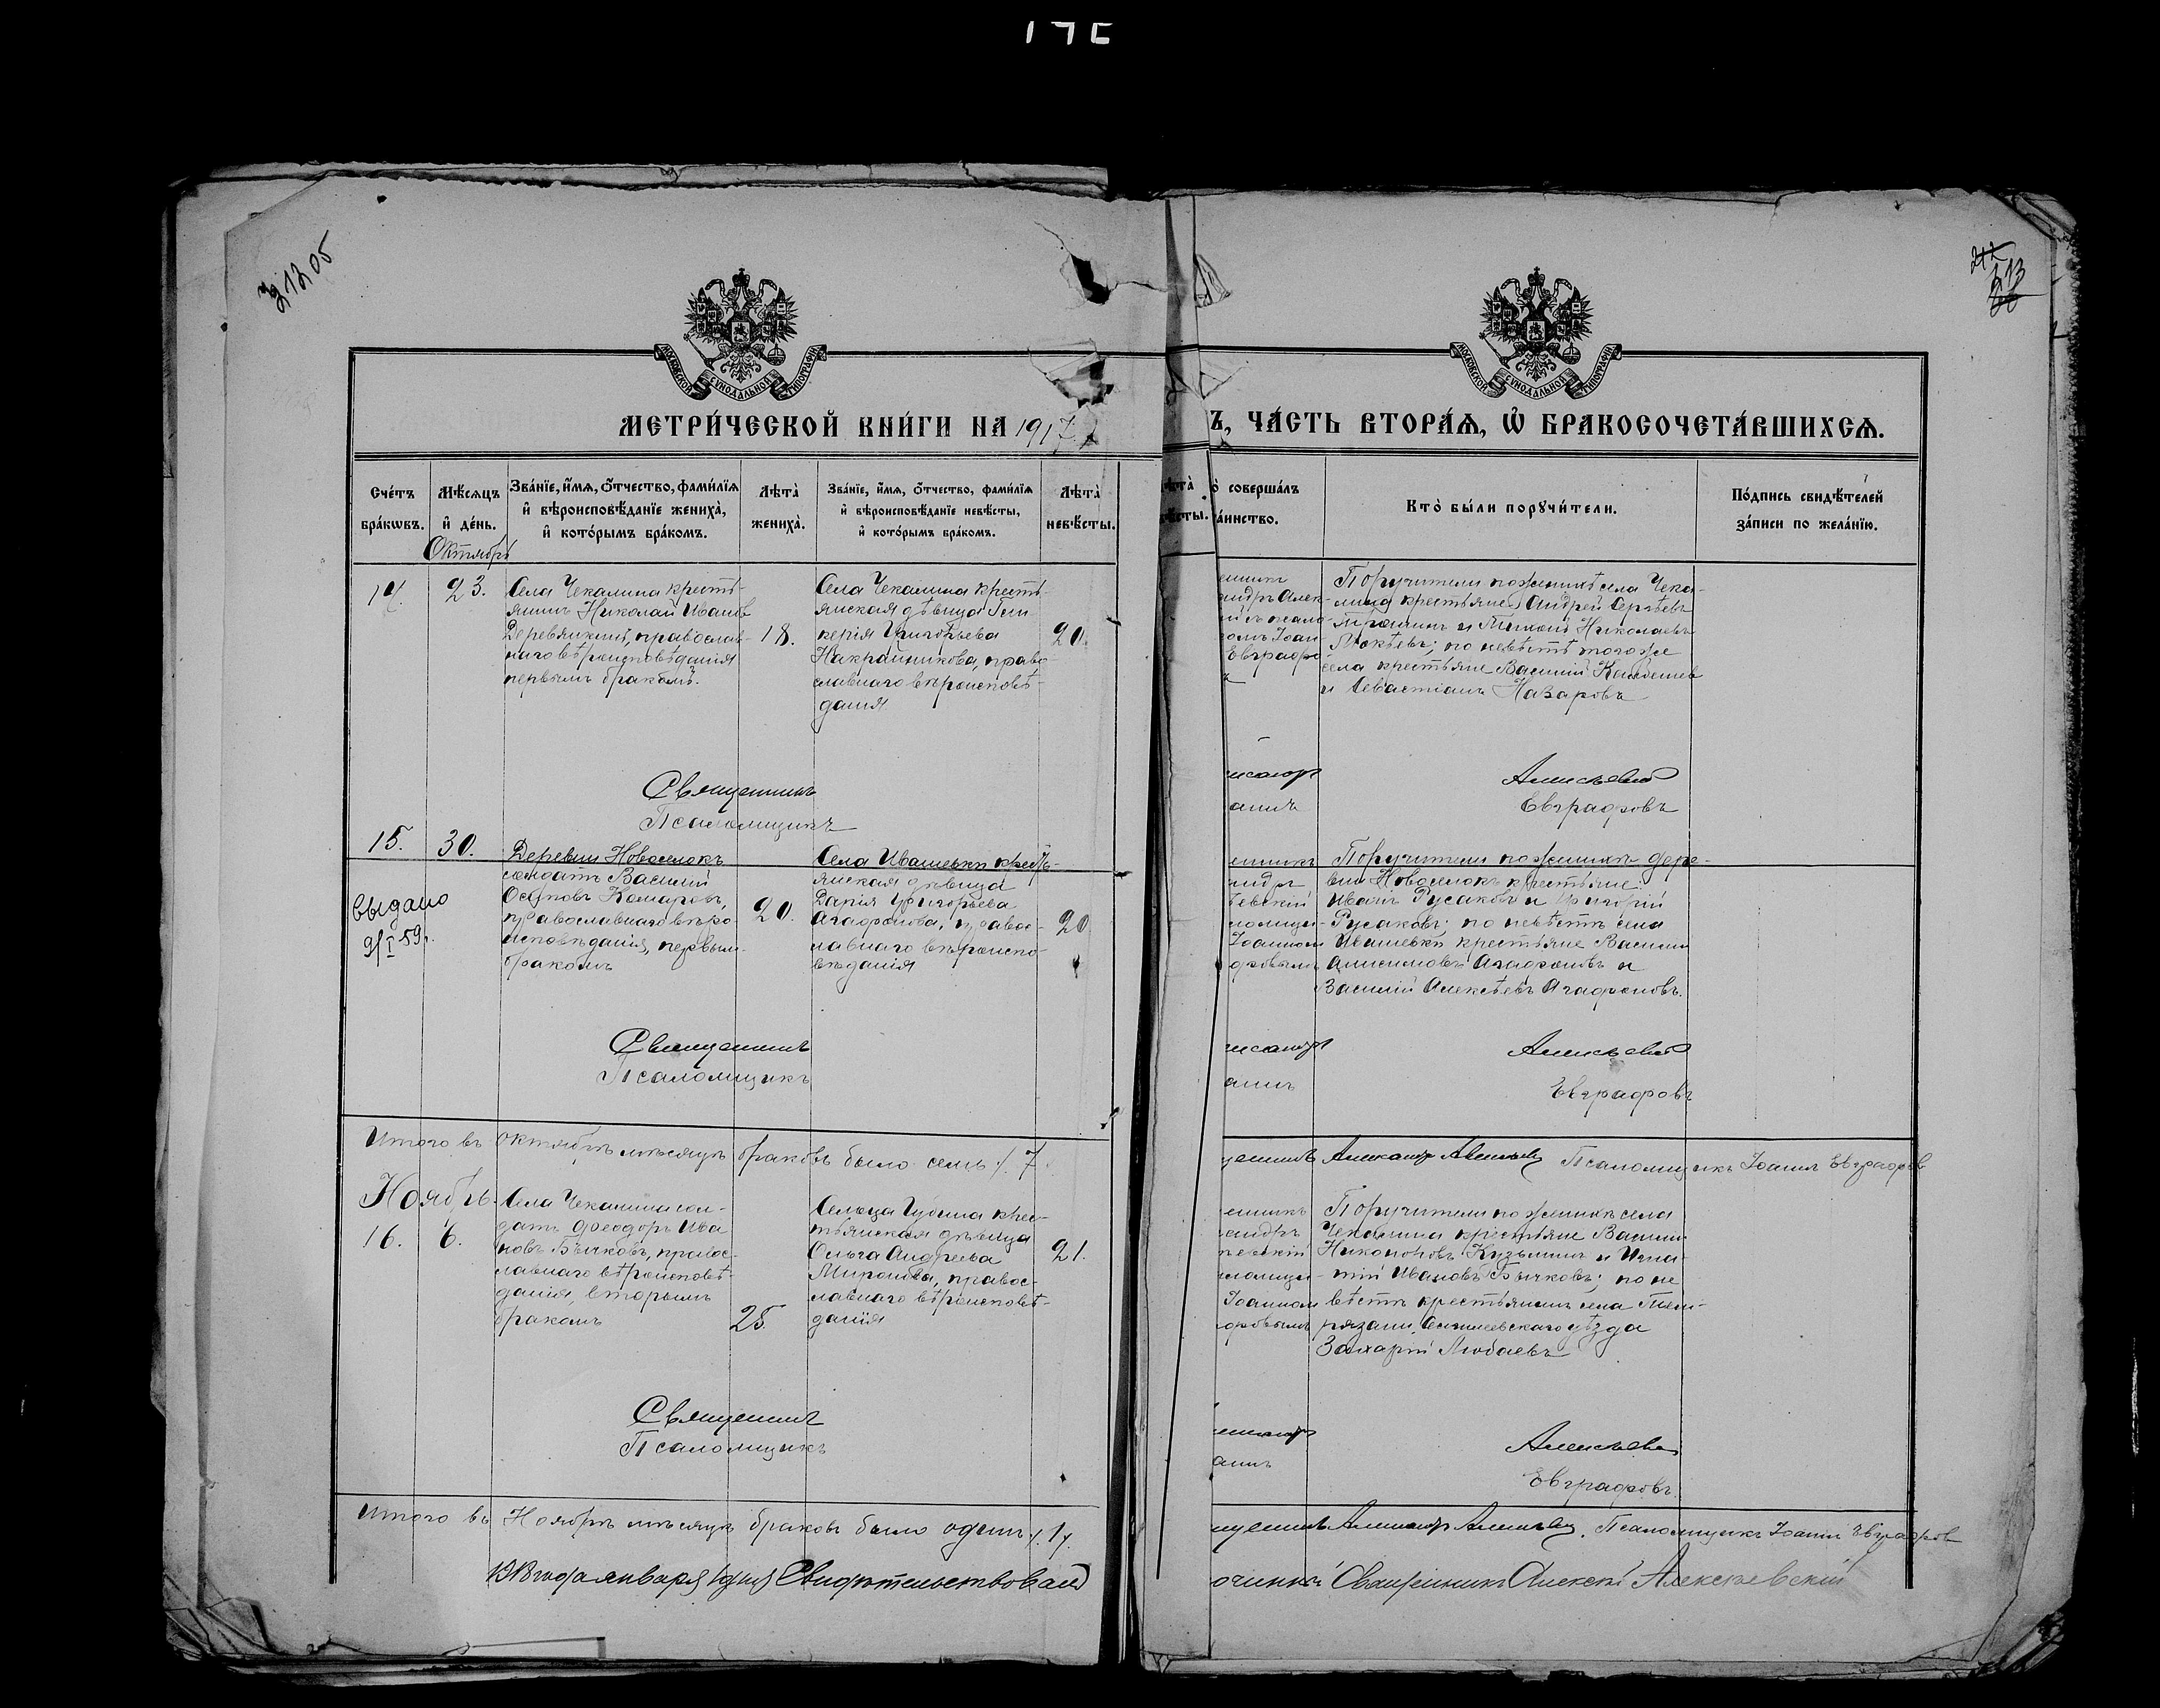 31205
213
МОСКОВСКОЙ СУНОДАЛЬНОЙ ТИПОГРАФІИ
МОСКОВСКОЙ СУНОДАЛЬНОЙ ТИПОГРАФІИ
МЕТРИ́ЧЕСКОЙ КНИ́ГИ НА 1917
Ъ, ЧА́СТЬ ВТОРА́Ѧ, Ѡ БРАКОСОЧЕТА́ВШИХСѦ.
Сче́тъ бра́кѡвъ.
Мѣ́сѧцъ и҆ де́нь.
Зва́нїе, и҆́мѧ, ѻ҆́тчество, фами́лїѧ и҆ вѣроисповѣ́данїе жениха̀, и҆ кото́рымъ бра́комъ.
Лѣта̀ жениха̀.
Зва́нїе, и҆́мѧ, ѻ҆́тчество, фами́лїѧ и҆ вѣроисповѣ́данїе невѣ́сты, и҆ кото́рымъ бра́комъ.
Лѣта̀ невѣ́сты.
о̀ соверша́лъ
а́инство.
Кто̀ бы́ли порꙋчи́тели.
По́дпись свидѣ́телей
за́писи по жела́нїю.
Октябрь
14.
23.
Села Чекалина кресть-
янинъ Николай Иванов
Деревянкинъ, православ-
наго вѣроисповѣданія
первымъ бракомъ.
18.
Села Чекалина кресть-
янская дѣвица Гли-
керія Григорьева
Накрайникова, право-
славнаго вѣроисповѣ-
данія
20.
енникъ
андръ Алек-
Евграфо
Поручители по женихѣ села Чека-
лина крестьяне Андрей Сергѣевъ
и Михаил Николаевъ
по невѣстѣ того же
села крестьяне Василій
и Севастіанъ Назаровъ
Священникъ
Псаломщикъ
Евграфовъ
15.
30.
Деревни Новоселокъ
солдатъ Василій
Осиповъ Комаровъ,
православнаго вѣро
исповѣданія, первым
бракомъ
20.
Села Ивашевки кресть-
янская дѣвица
Дарія Григорьева
Агафонова, правос-
лавнаго вѣроиспо-
вѣданія
20
выдано
9/I 59г.
енникъ
андръ
ѣевскій
ломщи-
Іоанном
фовымъ
Поручители по женихѣ дере-
вни Новоселокъ крестьяне
Иванъ Русаковъ и Григорій
Русаковъ; по невѣстѣ села
Ивашевки крестьяне Василій
Анисимовъ Агафоновъ и
Василій Алексѣевъ Агафоновъ.
Священникъ
Псаломщикъ
Евграфовъ
Итого въ октябрѣ мѣсяцѣ браковъ было семь /. 7.
Псаломщикъ Іоаннъ Евграфов
Ноябрь.
16.
6.
Села Чекалина сол-
датъ Феодоръ Ива
новъ Бычковъ, правос-
лавнаго вѣроисповѣ-
данія, вторымъ
бракомъ
25.
Сельца Губина крес-
тьянская дѣвица
Ольга Андреева
Миронова, правос-
лавнаго вѣроисповѣ-
данія
21.
енникъ
андръ
ѣевскій
ломщи-
Іоанном
фовымъ
Поручители по женихѣ села
Чекалина крестьяне Василій
Никоновъ Кузьминъ и Игна-
тій Ивановъ Бычковъ; по не
вѣстѣ крестьянинъ села
уѣзда
Захарій Любаевъ
Священникъ
Псаломщикъ
Евграфовъ.
Итого въ Ноябрѣ мѣсяцѣ браковъ было одинъ /. 1/.
Псаломщикъ Іоаннъ Евграфов
1918 года января дня Свидѣтельствовалъ
очинный Священникъ Алексѣй Алексѣевскій